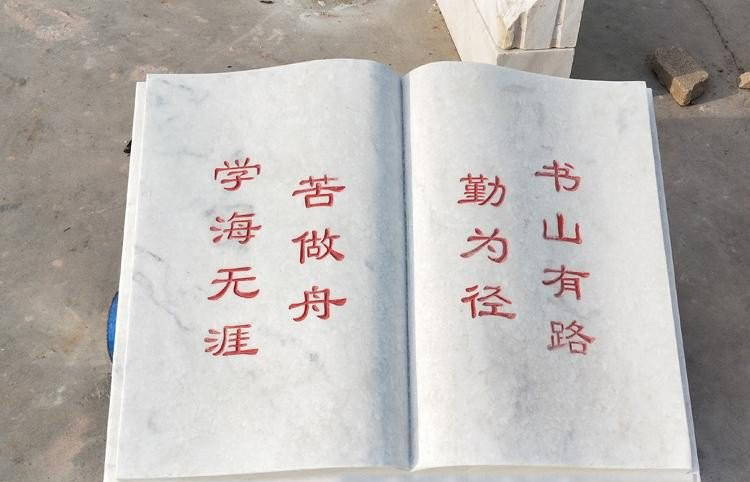 书山有路
勤为径
苦做舟
学海无涯